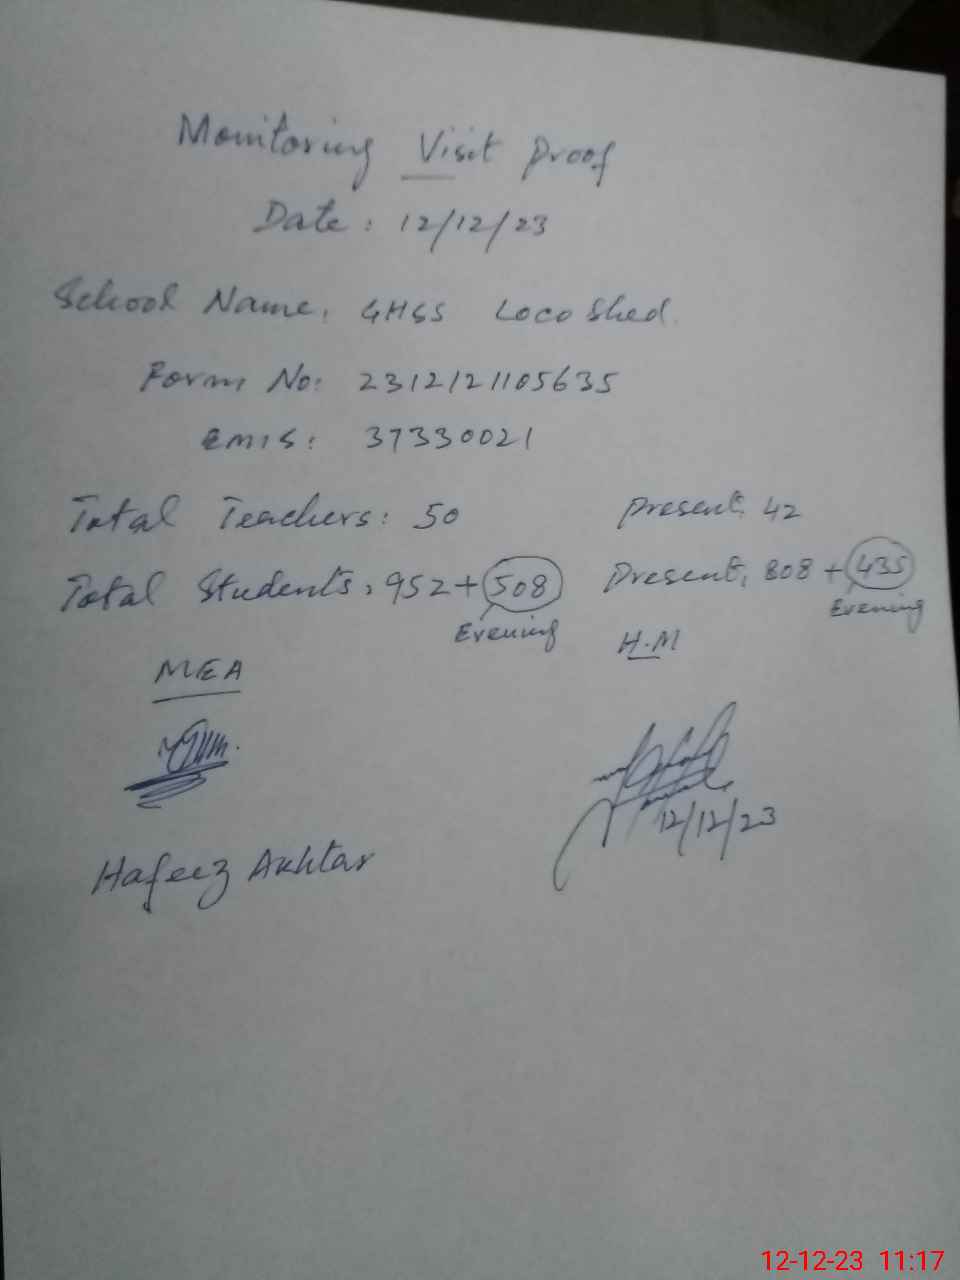 Monitoring Visit Proof
Date: 12/12/23
School Name: GHSS Loco Shed.
Form No: 2312121105635
EMIS: 37330021
Total Teachers: 50 Present: 42
Total Students: 952 + 508 Present: 808 + 435
Evening Evening
MEA H.M
12/12/23
Hafeez Akhtar
12-12-23 11:17